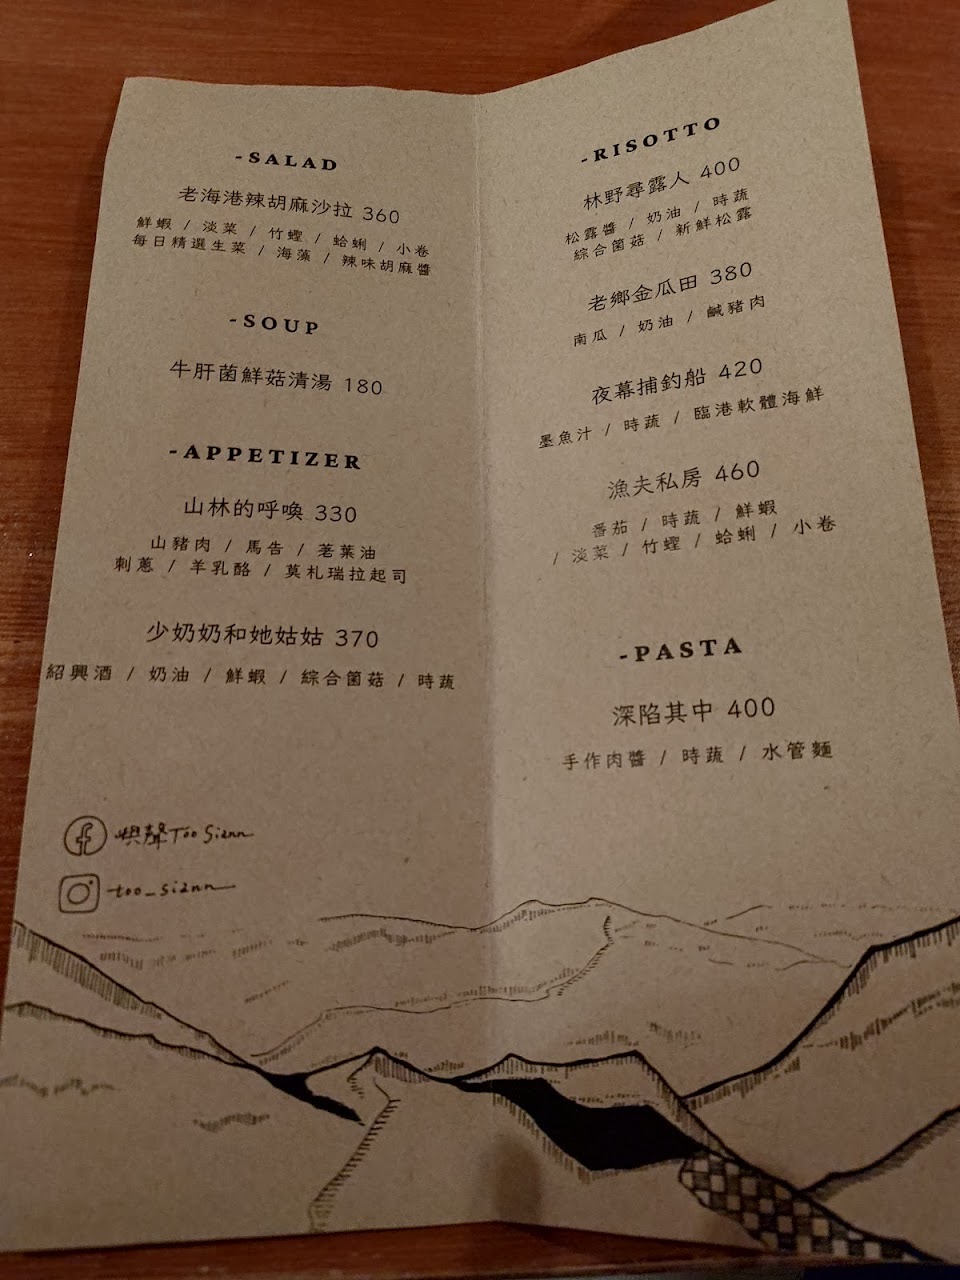 -SALAD
老海港辣胡麻沙拉 360
鮮蝦 / 淡菜 / 竹蟶 / 蛤蜊 / 小卷
每日精選生菜 / 海藻 / 辣味胡麻醬
-SOUP
牛肝菌鮮菇清湯 180
-APPETIZER
山林的呼喚 330
山豬肉 / 馬告 / 荖葉油
刺蔥 / 羊乳酪 / 莫札瑞拉起司
少奶奶和她姑姑 370
紹興酒 / 奶油 / 鮮蝦 / 綜合菌菇 / 時蔬
嶼聲Too Siann
too_siann
-RISOTTO
林野尋露人 400
松露醬 / 奶油 / 時蔬
綜合菌菇 / 新鮮松露
老鄉金瓜田 380
南瓜 / 奶油 / 鹹豬肉
夜幕捕釣船 420
墨魚汁 / 時蔬 / 臨港軟體海鮮
漁夫私房 460
番茄 / 時蔬 / 鮮蝦
/ 淡菜 / 竹蟶 / 蛤蜊 / 小卷
-PASTA
深陷其中 400
手作肉醬 / 時蔬 / 水管麵